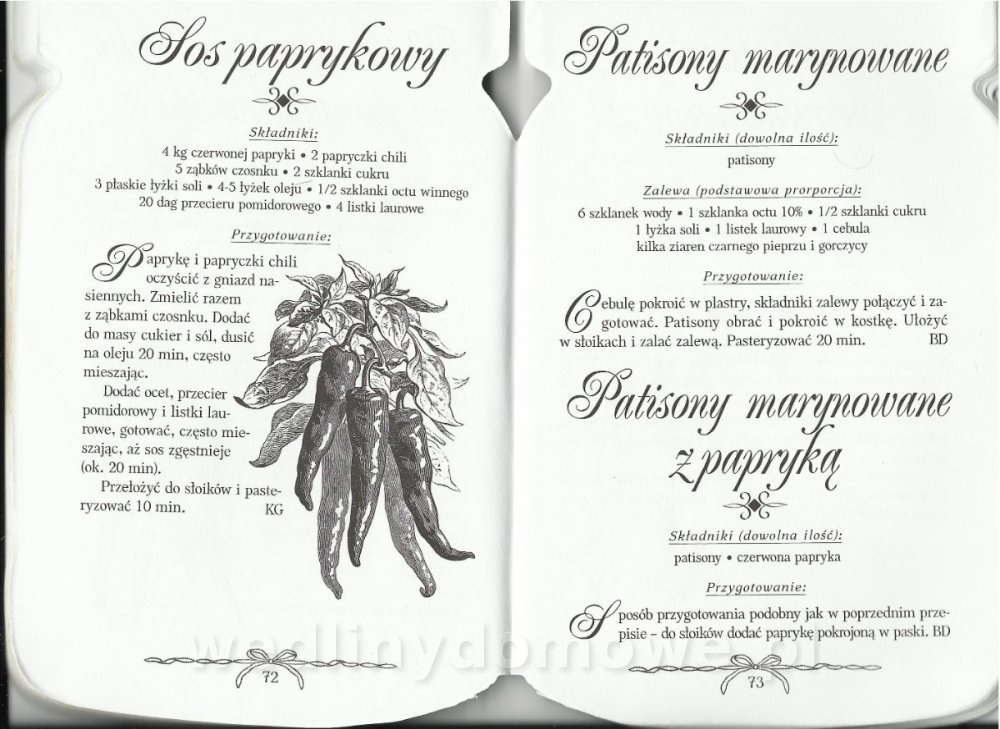 Sos paprykowy
Składniki:
4 kg czerwonej papryki • 2 papryczki chili
5 ząbków czosnku • 2 szklanki cukru
3 płaskie łyżki soli • 4-5 łyżek oleju • 1/2 szklanki octu winnego
20 dag przecieru pomidorowego • 4 listki laurowe
Przygotowanie:
Paprykę i papryczki chili
oczyścić z gniazd na-
siennych. Zmielić razem
z ząbkami czosnku. Dodać
do masy cukier i sól, dusić
na oleju 20 min, często
mieszając.
Dodać ocet, przecier
pomidorowy i listki lau-
rowe, gotować, często mie-
szając, aż sos zgęstnieje
(ok. 20 min).
Przełożyć do słoików i paste-
ryzować 10 min. KG
72
Patisony marynowane
Składniki (dowolna ilość):
patisony
Zalewa (podstawowa prorporcja):
6 szklanek wody • 1 szklanka octu 10% • 1/2 szklanki cukru
1 łyżka soli • 1 listek laurowy • 1 cebula
kilka ziaren czarnego pieprzu i gorczycy
Przygotowanie:
Cebulę pokroić w plastry, składniki zalewy połączyć i za-
gotować. Patisony obrać i pokroić w kostkę. Ułożyć
w słoikach i zalać zalewą. Pasteryzować 20 min. BD
Patisony marynowane
z papryką
Składniki (dowolna ilość):
patisony • czerwona papryka
Przygotowanie:
Sposób przygotowania podobny jak w poprzednim prze-
pisie – do słoików dodać paprykę pokrojoną w paski. BD
73
wedlinydomowe.pl